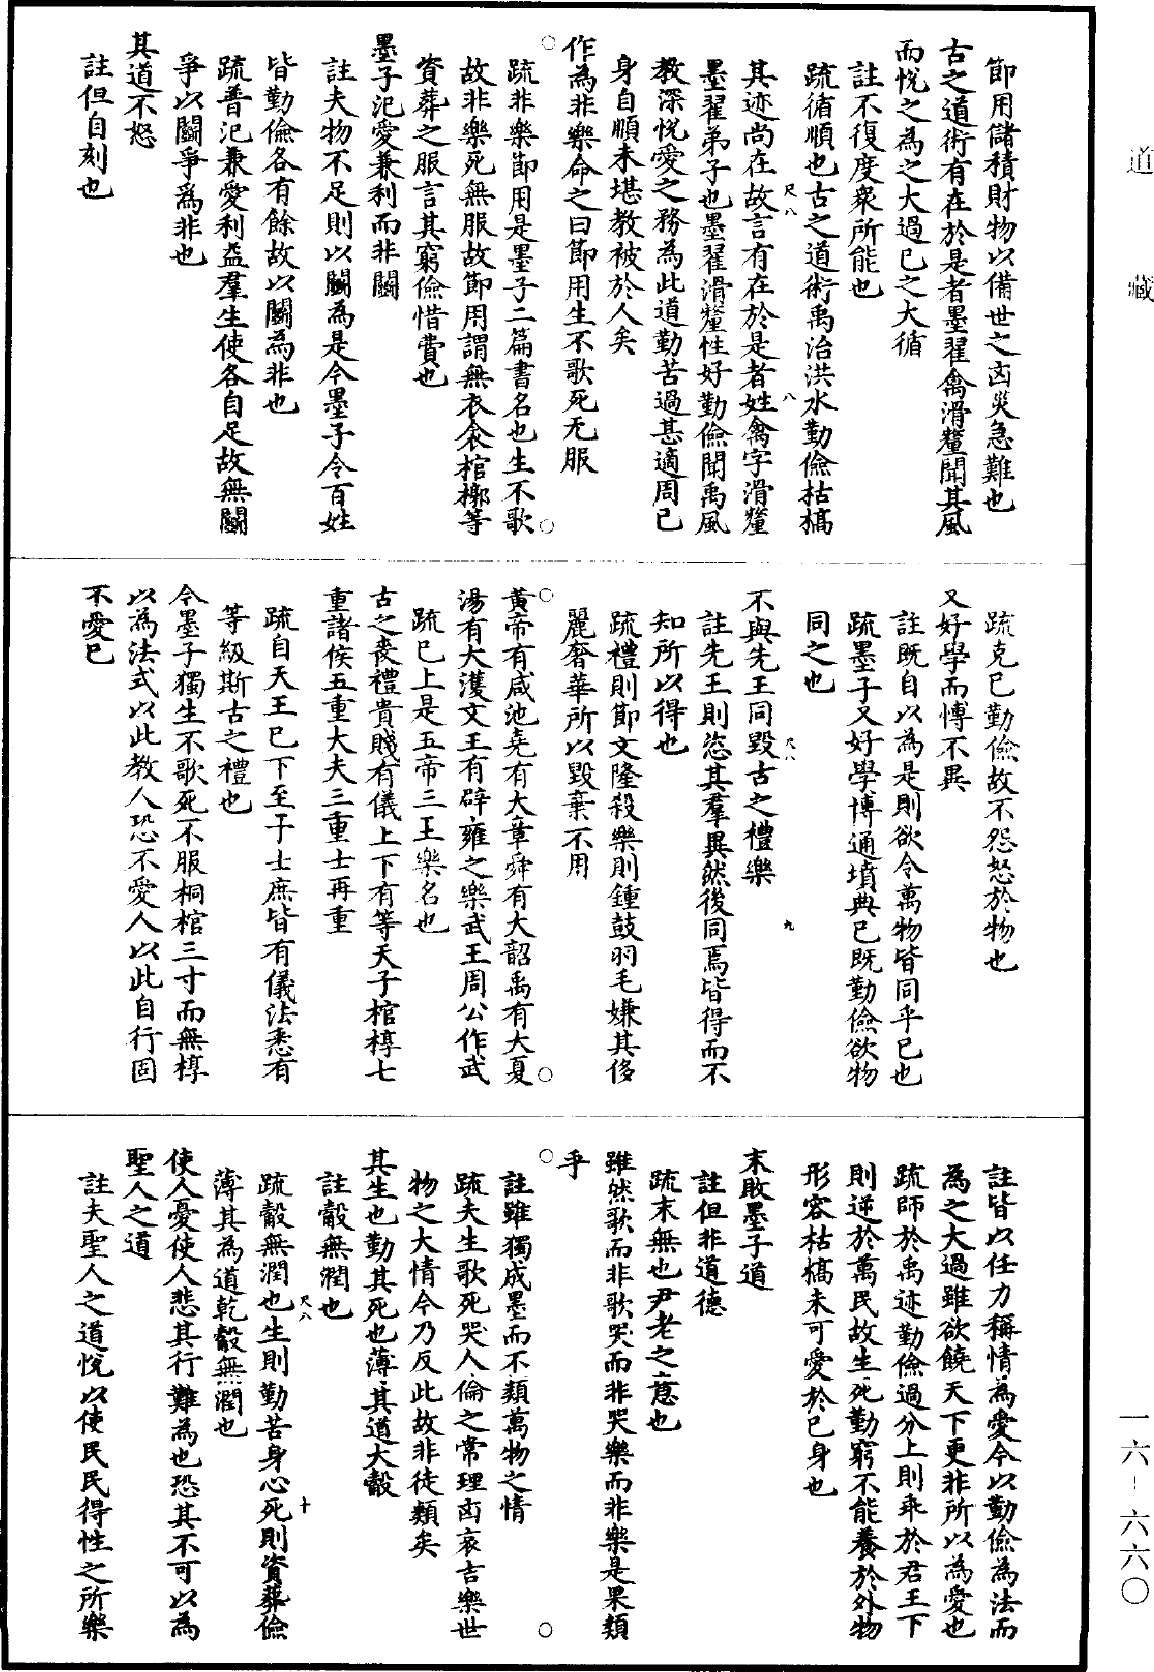 道藏
節用儲積財物以備世之凶災急難也
古之道術有在於是者墨翟禽滑釐聞其風
而悅之為之大過已之大循
註不復度衆所能也
疏循順也古之道術禹治洪水勤儉枯槁
其迹尚在故言有在於是者姓禽字滑釐
尺八
八
墨翟弟子也墨翟滑釐性好勤儉聞禹風
教深悅愛之務為此道勤苦過甚適周已
身自順未堪教被於人矣
作為非樂命之曰節用生不歌死无服
疏非樂節用是墨子二篇書名也生不歌
故非樂死無服故節用謂無衣衾棺槨等
資葬之服言其窮儉惜費也
墨子汜愛兼利而非鬭
註夫物不足則以鬭為是今墨子令百姓
皆勤儉各有餘故以鬭為非也
疏普汜兼愛利益羣生使各自足故無鬭
爭以鬭爭爲非也
其道不怒
註但自刻也
疏克已勤儉故不怨怒於物也
又好學而博不異
註既自以為是則欲令萬物皆同乎已也
疏墨子又好學博通墳典已既勤儉欲物
同之也
不與先王同毀古之禮樂
尺八
九
註先王則恣其羣異然後同焉皆得而不
知所以得也
疏禮則節文隆殺樂則鍾鼓羽毛嫌其侈
麗奢華所以毀棄不用
黃帝有咸池堯有大章舜有大韶禹有大夏
湯有大濩文王有辟雍之樂武王周公作武
疏已上是五帝三王樂名也
古之喪禮貴賤有儀上下有等天子棺椁七
重諸侯五重大夫三重士再重
疏自天王已下至于士庶皆有儀法悉有
等級斯古之禮也
今墨子獨生不歌死不服桐棺三寸而無椁
以為法式以此教人恐不愛人以此自行固
不愛已
註皆以任力稱情為愛今以勤儉為法而
為之大過雖欲饒天下更非所以為愛也
疏師於禹迹勤儉過分上則乖於君王下
則逆於萬民故生死勤窮不能養於外物
形容枯槁未可愛於已身也
末敗墨子道
註但非道德
疏末無也尹老之意也
雖然歌而非歌哭而非哭樂而非樂是果類
乎
註雖獨成墨而不類萬物之情
疏夫生歌死哭人倫之常理凶哀吉樂世
物之大情今乃反此故非徒類矣
其生也勤其死也薄其道大觳
註觳無潤也
疏觳無潤也生則勤苦身心死則資葬儉
尺八
十
薄其為道乾觳無潤也
使人憂使人悲其行難為也恐其不可以為
聖人之道
註夫聖人之道悅以使民民得性之所樂
一六–六六〇